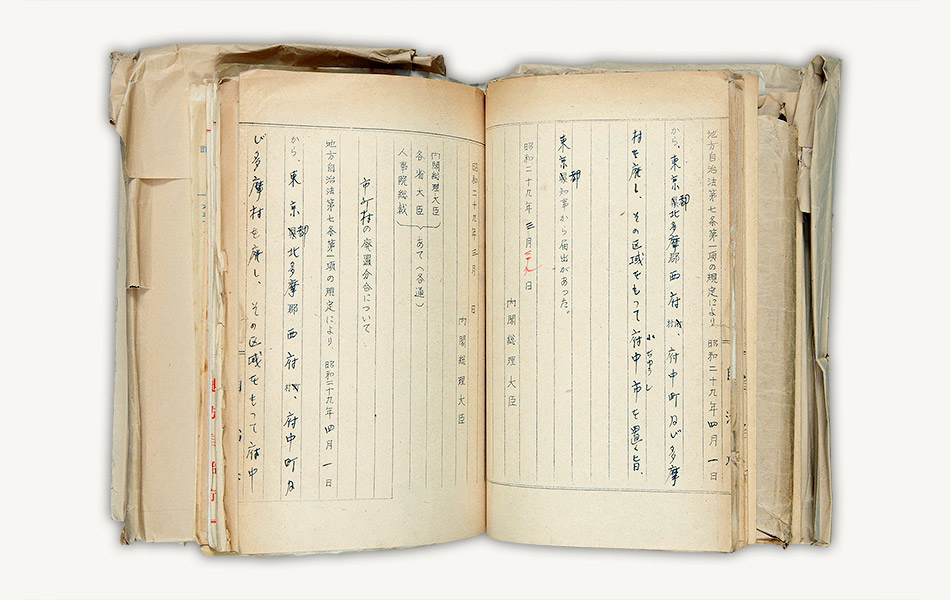 地方自治法第七条第一項の規定により、昭和二十九年四月一日
から、東京都北多摩郡西府村、府中町及び多摩
村を廃し、その区域をもつて府中市を置く旨、
東京都知事から届出があつた。
昭和二十九年三月三十九日
内閣総理大臣
昭和二十九年三月 日
内閣総理大臣
内閣総理大臣
各省大臣 あて(各通)
人事院総裁
市町村の廃置分合について
地方自治法第七条第一項の規定により、昭和二十九年四月一日
から、東京都北多摩郡西府村、府中町及
び多摩村を廃し、その区域をもつて府中